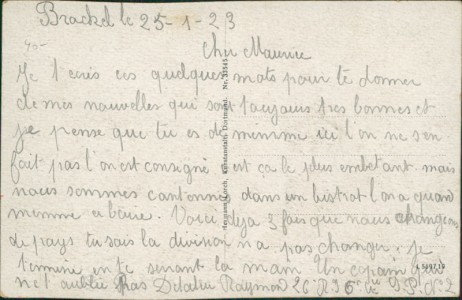 Brackel le 25-1-23
Cher Maurice
Je t'ecris ces quelques mots pour te donner
de mes nouvelles qui sont toujours tres bonnes et
je pense que tu es de mimme ici l'on ne s'en
fait pas l'on est consigné est ça le plus embetant mais
nous sommes cantonné dans un bistrot l'on a quand
mimme a boire. Voici deja 3 fois que nous changeons
de pays tu sais la division n'a pas changer. je
termine en te serrant la main Un copain
net oublie pas Raymon
Hermann Lorch, Kunstanstalt, Dortmund. Nr. 31545